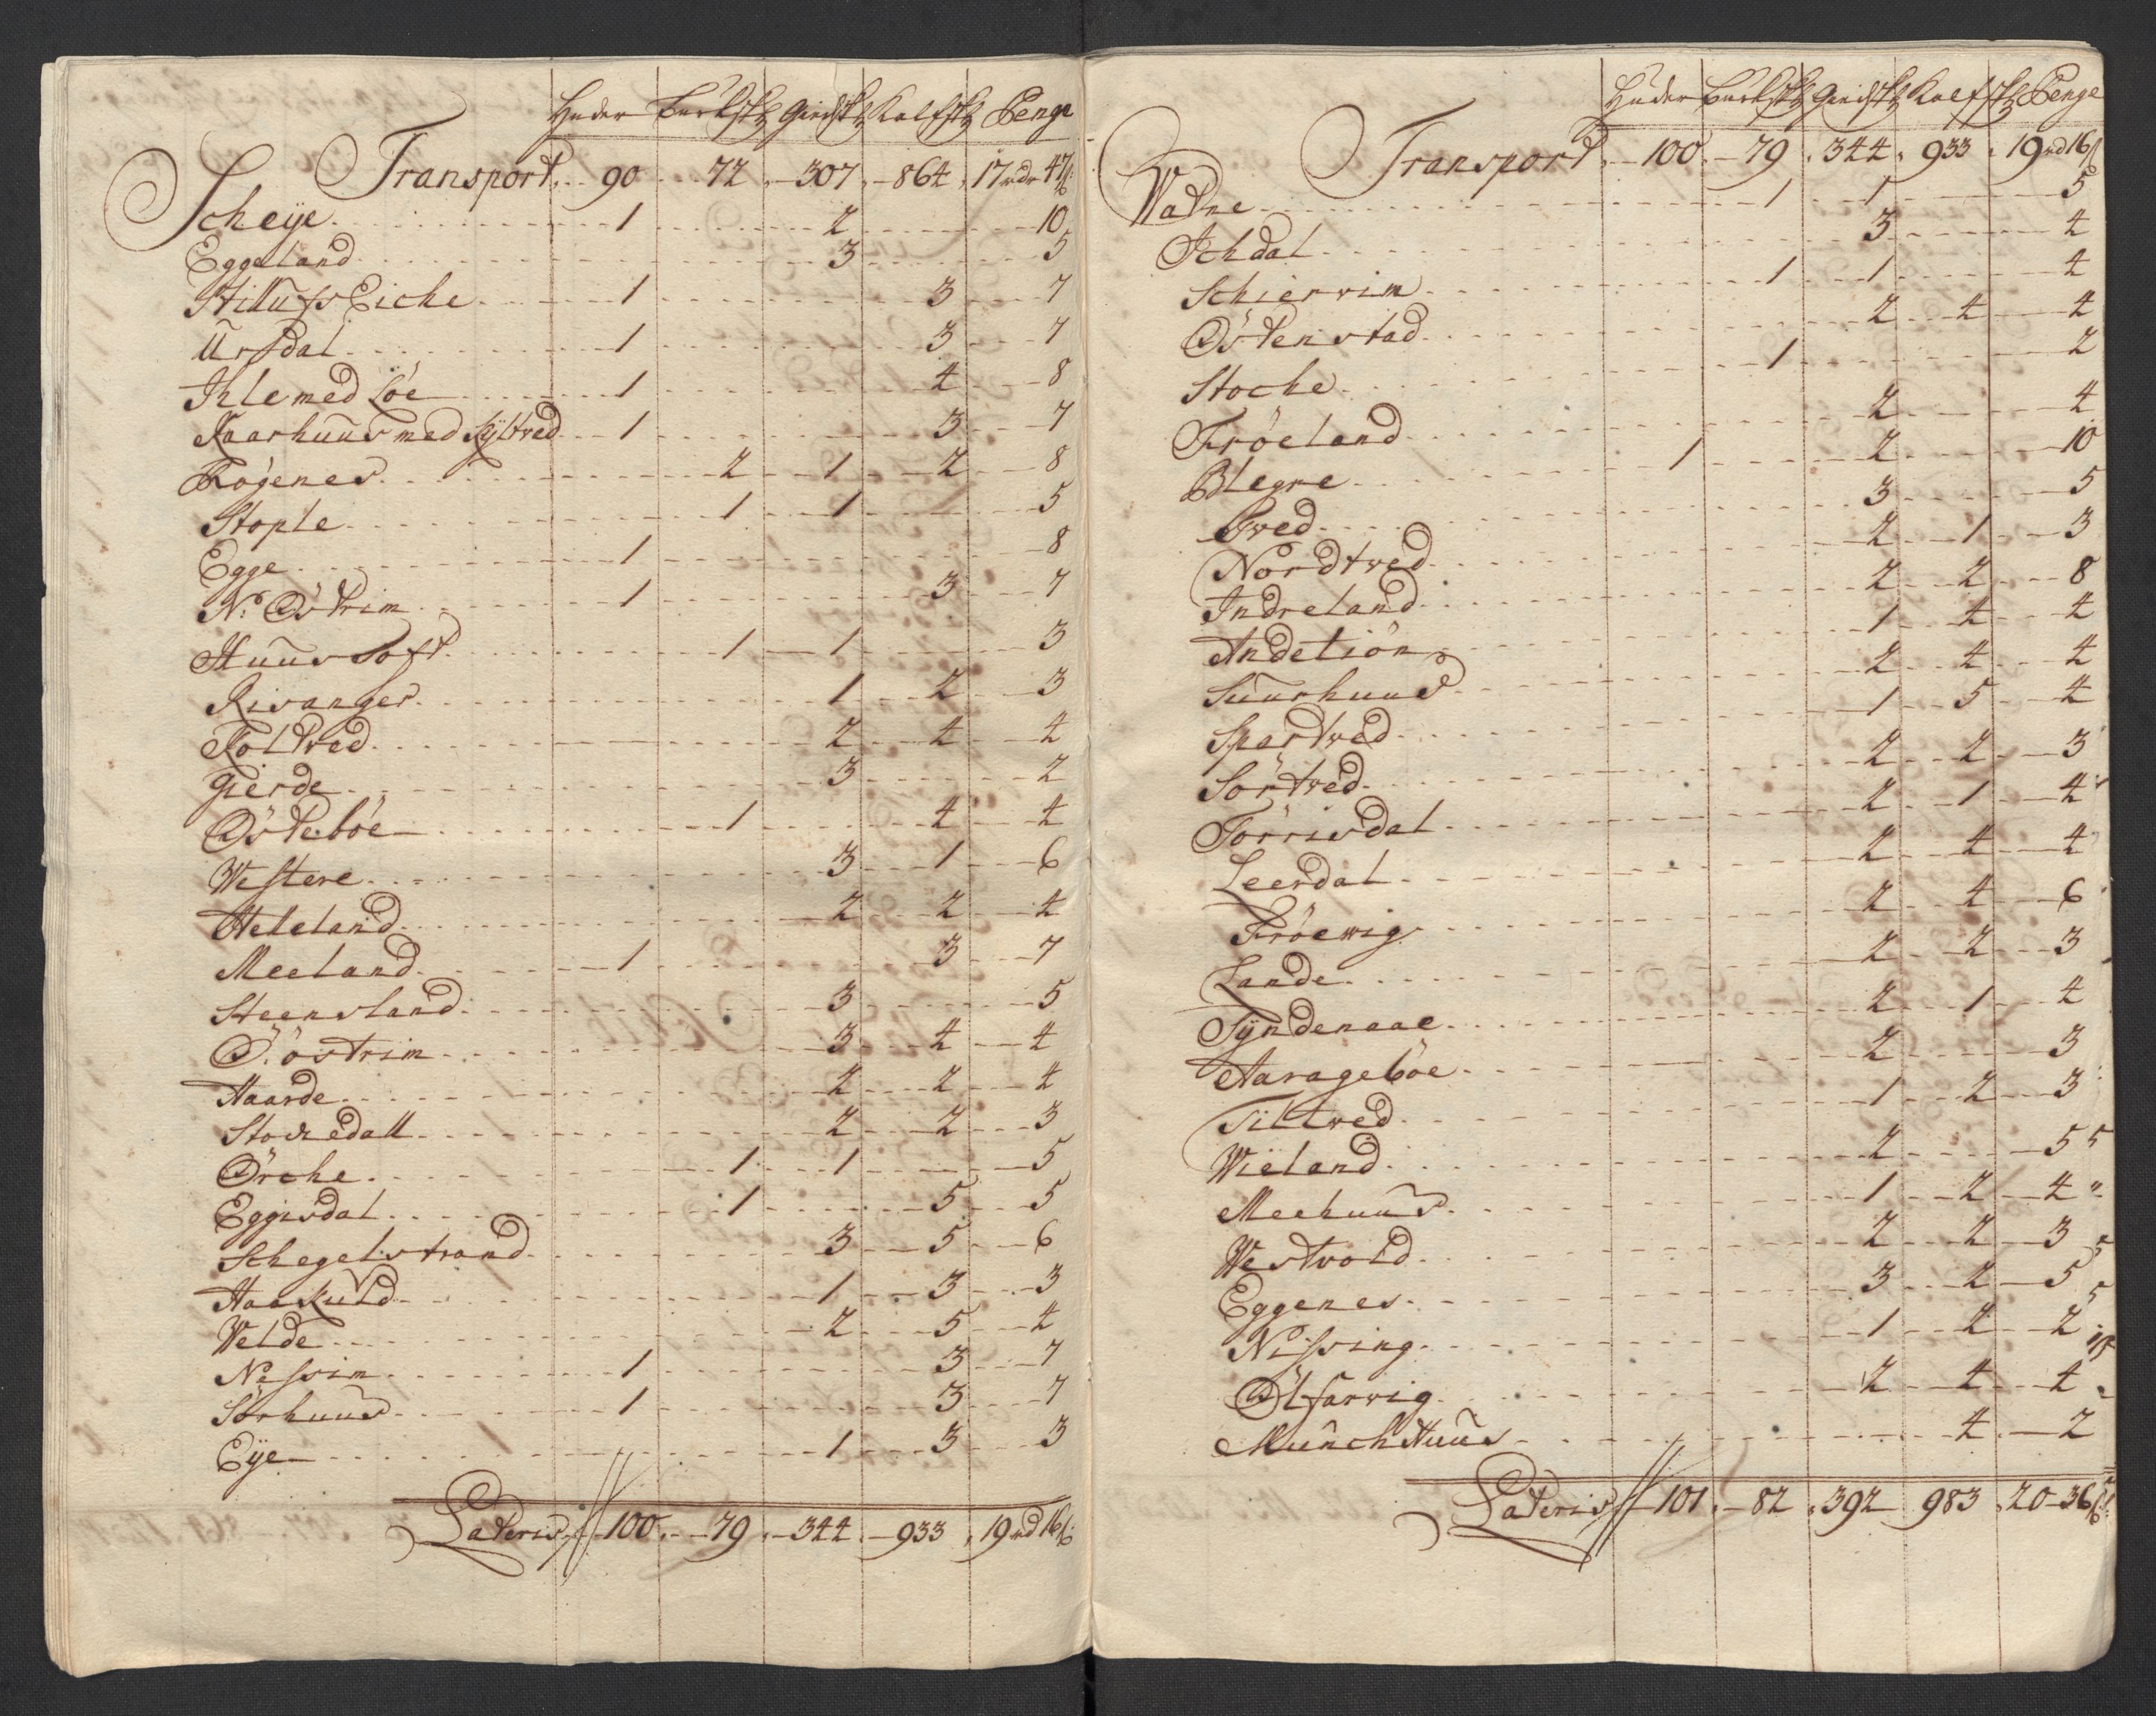 Huder Buckskj Giedskj Kalfskj Penge
Transport 90 72 307 864 17 rdr 47 ß
Scheije 1 2 10
Eggeland 3 5
Stilufs Eiche 1 3 7
Ursdal 1 3 7
Ihle med Löe 1 4 8
Aarhuus med Kyltved 1 3 7
Røgenes 2 1 2 8
Stople 1 1 5
Egge 1 8
N. Østrim 1 3 7
Stuustoft 1 1 3
Risanger 1 2 3
Foltved 2 4 4
Gierde 3 2
Østebøe 1 4 4
Westere 3 1 6
Heleland 2 2 4
Meeland 1 3 7
Steensland 3 5
S. östrim 3 4 4
Haarde 2 2 4
Stochedall 2 2 3
Ørche 1 1 5
Eggisdal 1 5 5
Schegelstrand 3 5 6
Haaskuld 1 3 3
Welde 2 5 4
Nessim 1 3 7
Sörhuus 1 3 7
Eije 1 3 3
Lateris 100 79 344 933 19 rd 16 ß
Huder Buckskj Giedskj Kalfskj Penge
Transport 100 79 344 933 19 rd 16 ß
Watne 1 1 5
Ichdal 3 4
Schiervim 1 1 4
Østenstad 2 4 4
Stoche 1 2
Frøeland 2 4
Blegne 1 2 10
Tved 3 5
Nordtved 2 1 3
Indreland 2 2 8
Andetiön 1 4 4
Suurhuus 2 4 4
Spertved 1 5 4
Sörtved 2 2 3
Törrisdal 2 1 4
Leerdal 2 4 4
Fröewig 2 4 6
Lande 2 2 3
Syndenaae 2 1 4
Aarageböe 2 3
Tiltved 1 2 3
Wieland 2 5
Meehuus 1 2 4
Westvold 2 2 3
Eggenes 3 2 5
Nissing 1 2 2
Ølfarvig 2 4 4
Munchhuus 4 2
Lateris 101 82 392 983 20 36 ß